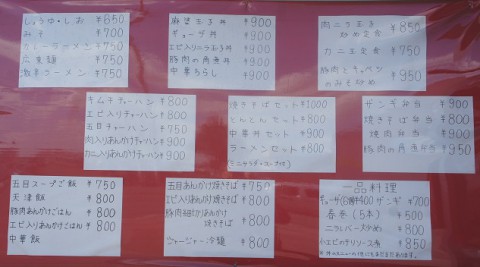 しょうゆ・しお ￥650
みそ ￥700
カレーラーメン ￥750
広東麺 ￥750
激辛ラーメン ￥750
麻婆玉子丼 ￥900
ギョーザ丼 ￥900
エビ入りニラ玉子丼 ￥900
豚肉の角煮丼 ￥900
中華ちらし ￥900
肉ニラ玉子
炒め定食 ￥850
カニ玉定食 ￥750
豚肉とキャベツ
のみそ炒め ￥950
キムチチャーハン ￥800
エビ入りチャーハン ￥800
五目チャーハン ￥750
肉入りあんかけチャーハン ￥900
カニ入りあんかけチャーハン ￥900
焼きそばセット ￥1000
とんとんセット ￥800
中華丼セット ￥900
ラーメンセット ￥800
ザンギ弁当 ￥900
焼きそば弁当 ￥800
焼肉弁当 ￥900
豚肉の角煮弁当 ￥950
五目スープご飯 ￥750
天津飯 ￥800
豚肉あんかけごはん ￥800
エビ入りあんかけごはん ￥800
中華飯
五目あんかけ焼きそば ￥750
エビ入りあんかけ焼きそば ￥800
豚肉あんかけ
焼きそば ￥800
ジャージャー冷麺 ￥800
一品料理
ザンギ ￥700
春巻(5本) ￥500
ニラレバー炒め ￥800
小エビのチリソース煮 ￥850